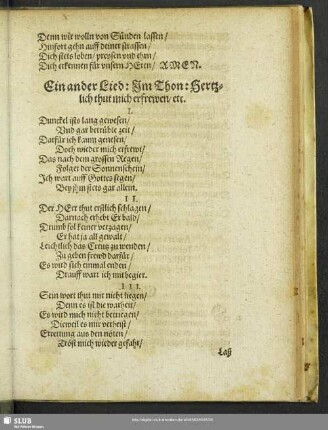 Denn wir wolln von Sünden lassen/
Hinfort gehn auff deiner strassen/
Dich stets loben/ preysen vnd ehrn/
Dich erkennen für vnsern HErrn/ AMEN.
Ein ander Lied: Im Thon: Hertz-
lich thut mich erfrewen/ etc.
I.
Dunckel ists lang gewesen/
Vnd gar betrübte zeit/
Darfür ich kaum genesen/
Doch wieder mich erfrewt/
Das nach dem grossen Regen/
Folget der Sonnenschein/
Ich wart auff Gottes segen/
Bey jhm stets gar allein.
II.
Der HErr thut erstlich schlagen/
Darnach erhebt Er bald/
Drumb sol keiner verzagen/
Er hat ja all gewalt/
Leichtlich das Creutz zu wenden/
Zu geben frewd darfür/
Es wird sich einmal enden/
Drauff wart ich mit begier.
III.
Sein wort thut mir nicht liegen/
Denn es ist die warheit/
Es wird mich nicht betriegen/
Dieweil es mir verheist/
Errettung aus den nöten/
Tröst mich wieder gefahr/
Laß
SLUB
Wir führen Wissen.